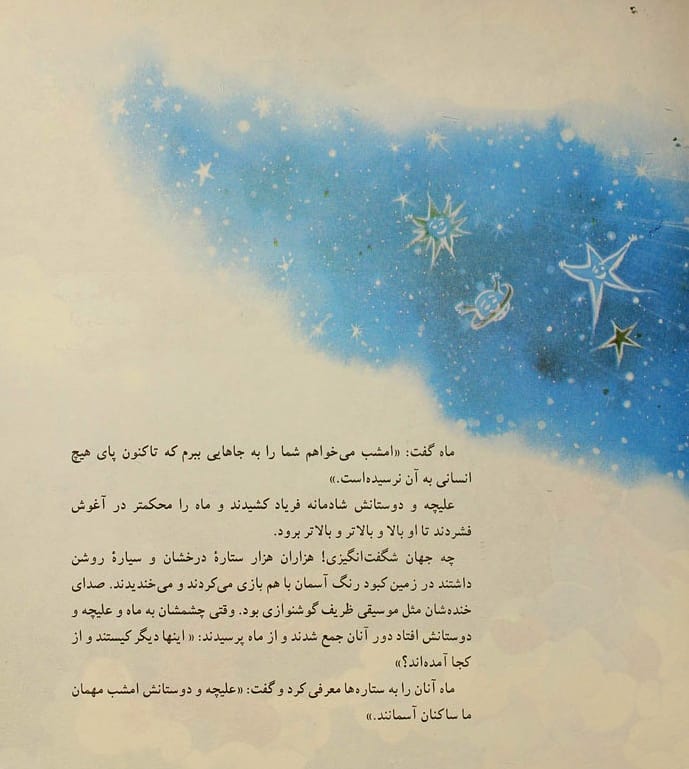 ماه گفت: «امشب می‌خواهم شما را به جاهایی ببرم که تاکنون پای هیچ
انسانی به آن نرسیده‌است.»
علیچه و دوستانش شادمانه فریاد کشیدند و ماه را محکمتر در آغوش
فشردند تا او بالا و بالاتر و بالاتر برود.
چه جهان شگفت‌انگیزی! هزاران هزار ستارهٔ درخشان و سیارهٔ روشن
داشتند در زمین کبود رنگ آسمان با هم بازی می‌کردند و می‌خندیدند. صدای
خنده‌شان مثل موسیقی ظریف گوشنوازی بود. وقتی چشمشان به ماه و علیچه و
دوستانش افتاد دور آنان جمع شدند و از ماه پرسیدند: « اینها دیگر کیستند و از
کجا آمده‌اند؟»
ماه آنان را به ستاره‌ها معرفی کرد و گفت: «علیچه و دوستانش امشب مهمان
ما ساکنان آسمانند.»